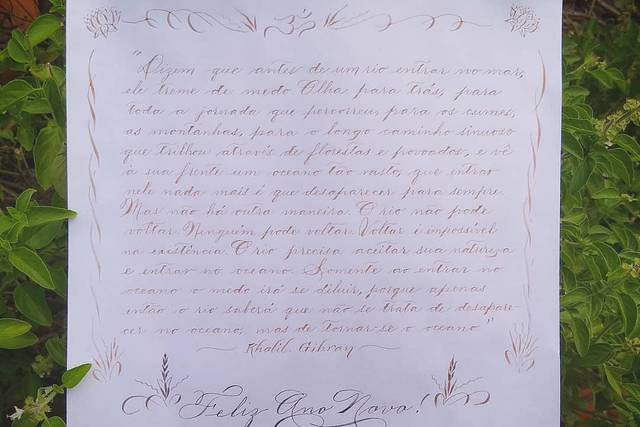 ॐ
"Dizem que antes de um rio entrar no mar,
ele treme de medo Olha para trás, para
toda a jornada que percorreu, para os cumes,
as montanhas, para o longo caminho sinuoso
que trilhou através de florestas e povoados, e vê
à sua frente um oceano tão vasto, que entrar
nele nada mais é que desaparecer para sempre.
Mas não há outra maneira. O rio não pode
voltar. Ninguém pode voltar. Voltar é impossível
na existência. O rio precisa aceitar sua natureza
e entrar no oceano. Somente ao entrar no
oceano o medo irá se diluir, porque apenas
então o rio saberá que não se trata de desapare-
cer no oceano, mas de tornar-se o oceano"
Khalil Gibran
Feliz Ano Novo!